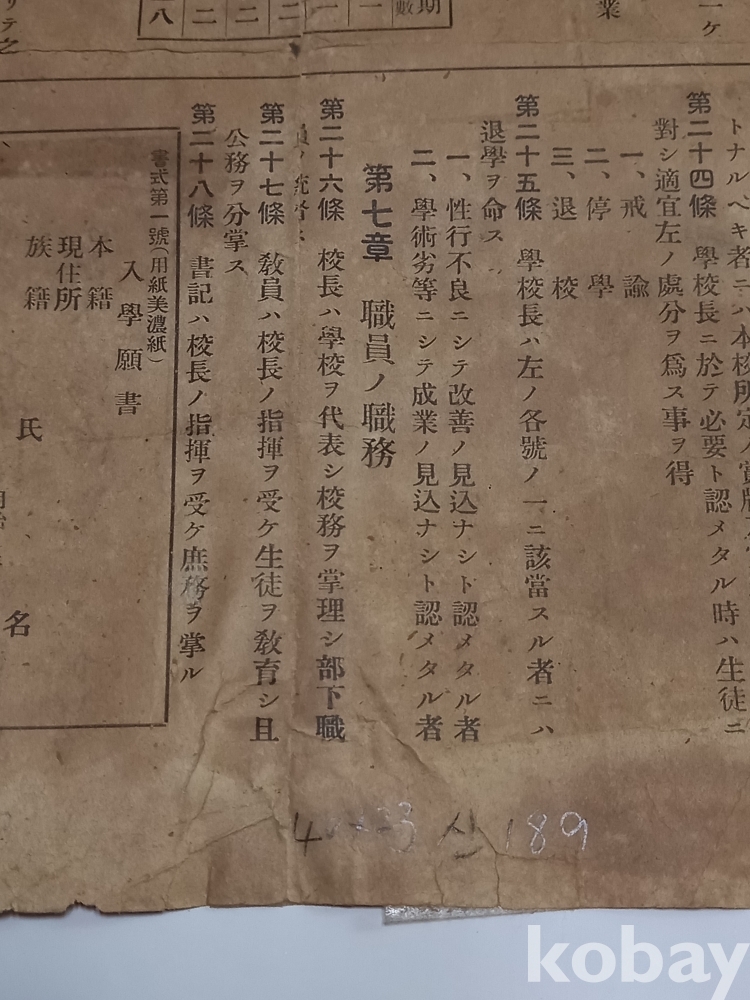 業
ーケ
期
數
一
一
一
二
二
二
八
リテ之
トナルベキ者ニハ本校所定ノ賞牌
第二十四條 學校長ニ於テ必要ト認メタル時ハ生徒ニ
對シ適宜左ノ處分ヲ爲ス事ヲ得
一、戒諭
二、停學
三、退校
第二十五條 學校長ハ左ノ各號ノ一ニ該當スル者ニハ
退學ヲ命ス
一、性行不良ニシテ改善ノ見込ナシト認メタル者
二、學術劣等ニシテ成業ノ見込ナシト認メタル者
第七章 職員ノ職務
第二十六條 校長ハ學校ヲ代表シ校務ヲ掌理シ部下職
員ノ統督ス
第二十七條 敎員ハ校長ノ指揮ヲ受ケ生徒ヲ敎育シ且
公務ヲ分掌ス
第二十八條 書記ハ校長ノ指揮ヲ受ケ庶務ヲ掌ル
書式第一號(用紙美濃紙)
入學願書
本籍
現住所
族籍
氏名
4
산189
kobay